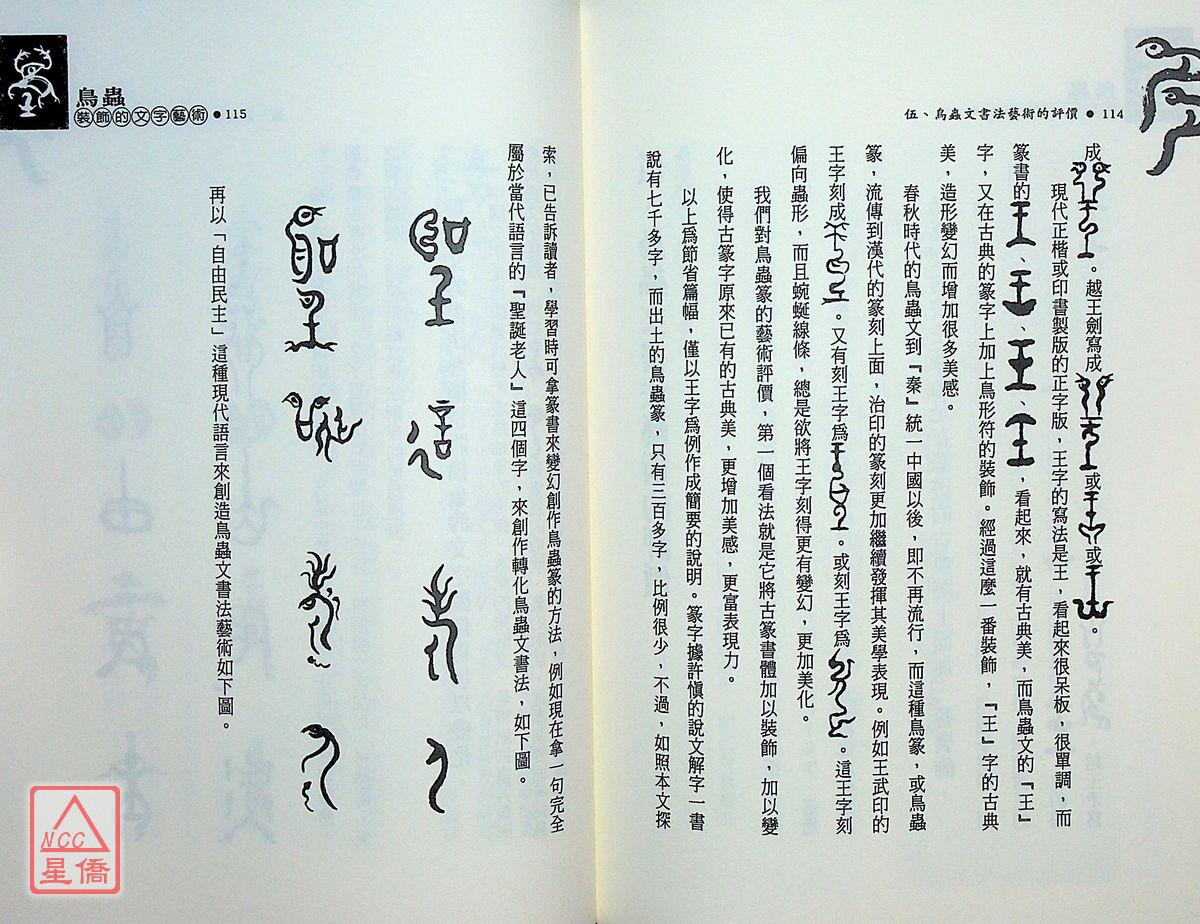 伍、鳥蟲文書法藝術的評價 ● 114
成。越王劍寫成或或。
現代正楷或印書製版的正字版，王字的寫法是王，看起來很呆板，很單調，而
篆書的、、、，看起來，就有古典美，而鳥蟲文的「王」
字，又在古典的篆字上加上鳥形符的裝飾。經過這麼一番裝飾，「王」字的古典
美，造形變幻而增加很多美感。
春秋時代的鳥蟲文到『秦』統一中國以後，即不再流行，而這種鳥篆，或鳥蟲
篆，流傳到漢代的篆刻上面，治印的篆刻更加繼續發揮其美學表現。例如王武印的
王字刻成。又有刻王字為。或刻王字為。這王字刻
偏向蟲形，而且蜿蜒線條，總是欲將王字刻得更有變幻，更加美化。
我們對鳥蟲篆的藝術評價，第一個看法就是它將古篆書體加以裝飾，加以變
化，使得古篆字原來已有的古典美，更增加美感，更富表現力。
以上為節省篇幅，僅以王字為例作成簡要的說明。篆字據許慎的說文解字一書
說有七千多字，而出土的鳥蟲篆，只有三百多字，比例很少，不過，如照本文探
鳥蟲
裝飾的文字藝術 ● 115
索，已告訴讀者，學習時可拿篆書來變幻創作鳥蟲篆的方法，例如現在拿一句完全
屬於當代語言的『聖誕老人』這四個字，來創作轉化鳥蟲文書法，如下圖。
再以「自由民主」這種現代語言來創造鳥蟲文書法藝術如下圖。
NCC
星僑